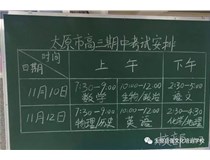 太原市高三期中考试安排
时间 上午 下午
日期
11月10日 7:30-9:00 10:00-12:00 2:30-5:00
数学 生物/政治 语文
11月12日 7:30-9:00 10:00-12:00
物理/历史 英语 化学/地理